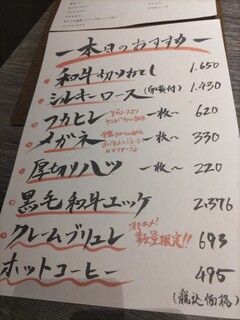 本日のおすすめ
和牛切りおとし 1.650
シルキーロース(卵黄付) 1.430
フカヒレ 一枚〜 620
メガネ 一枚〜 330
厚切りハツ 一枚〜 220
黒毛和牛ユッケ 2,376
クレームブリュレ オススメ! 数量限定!! 693
ホットコーヒー 495
(税込価格)